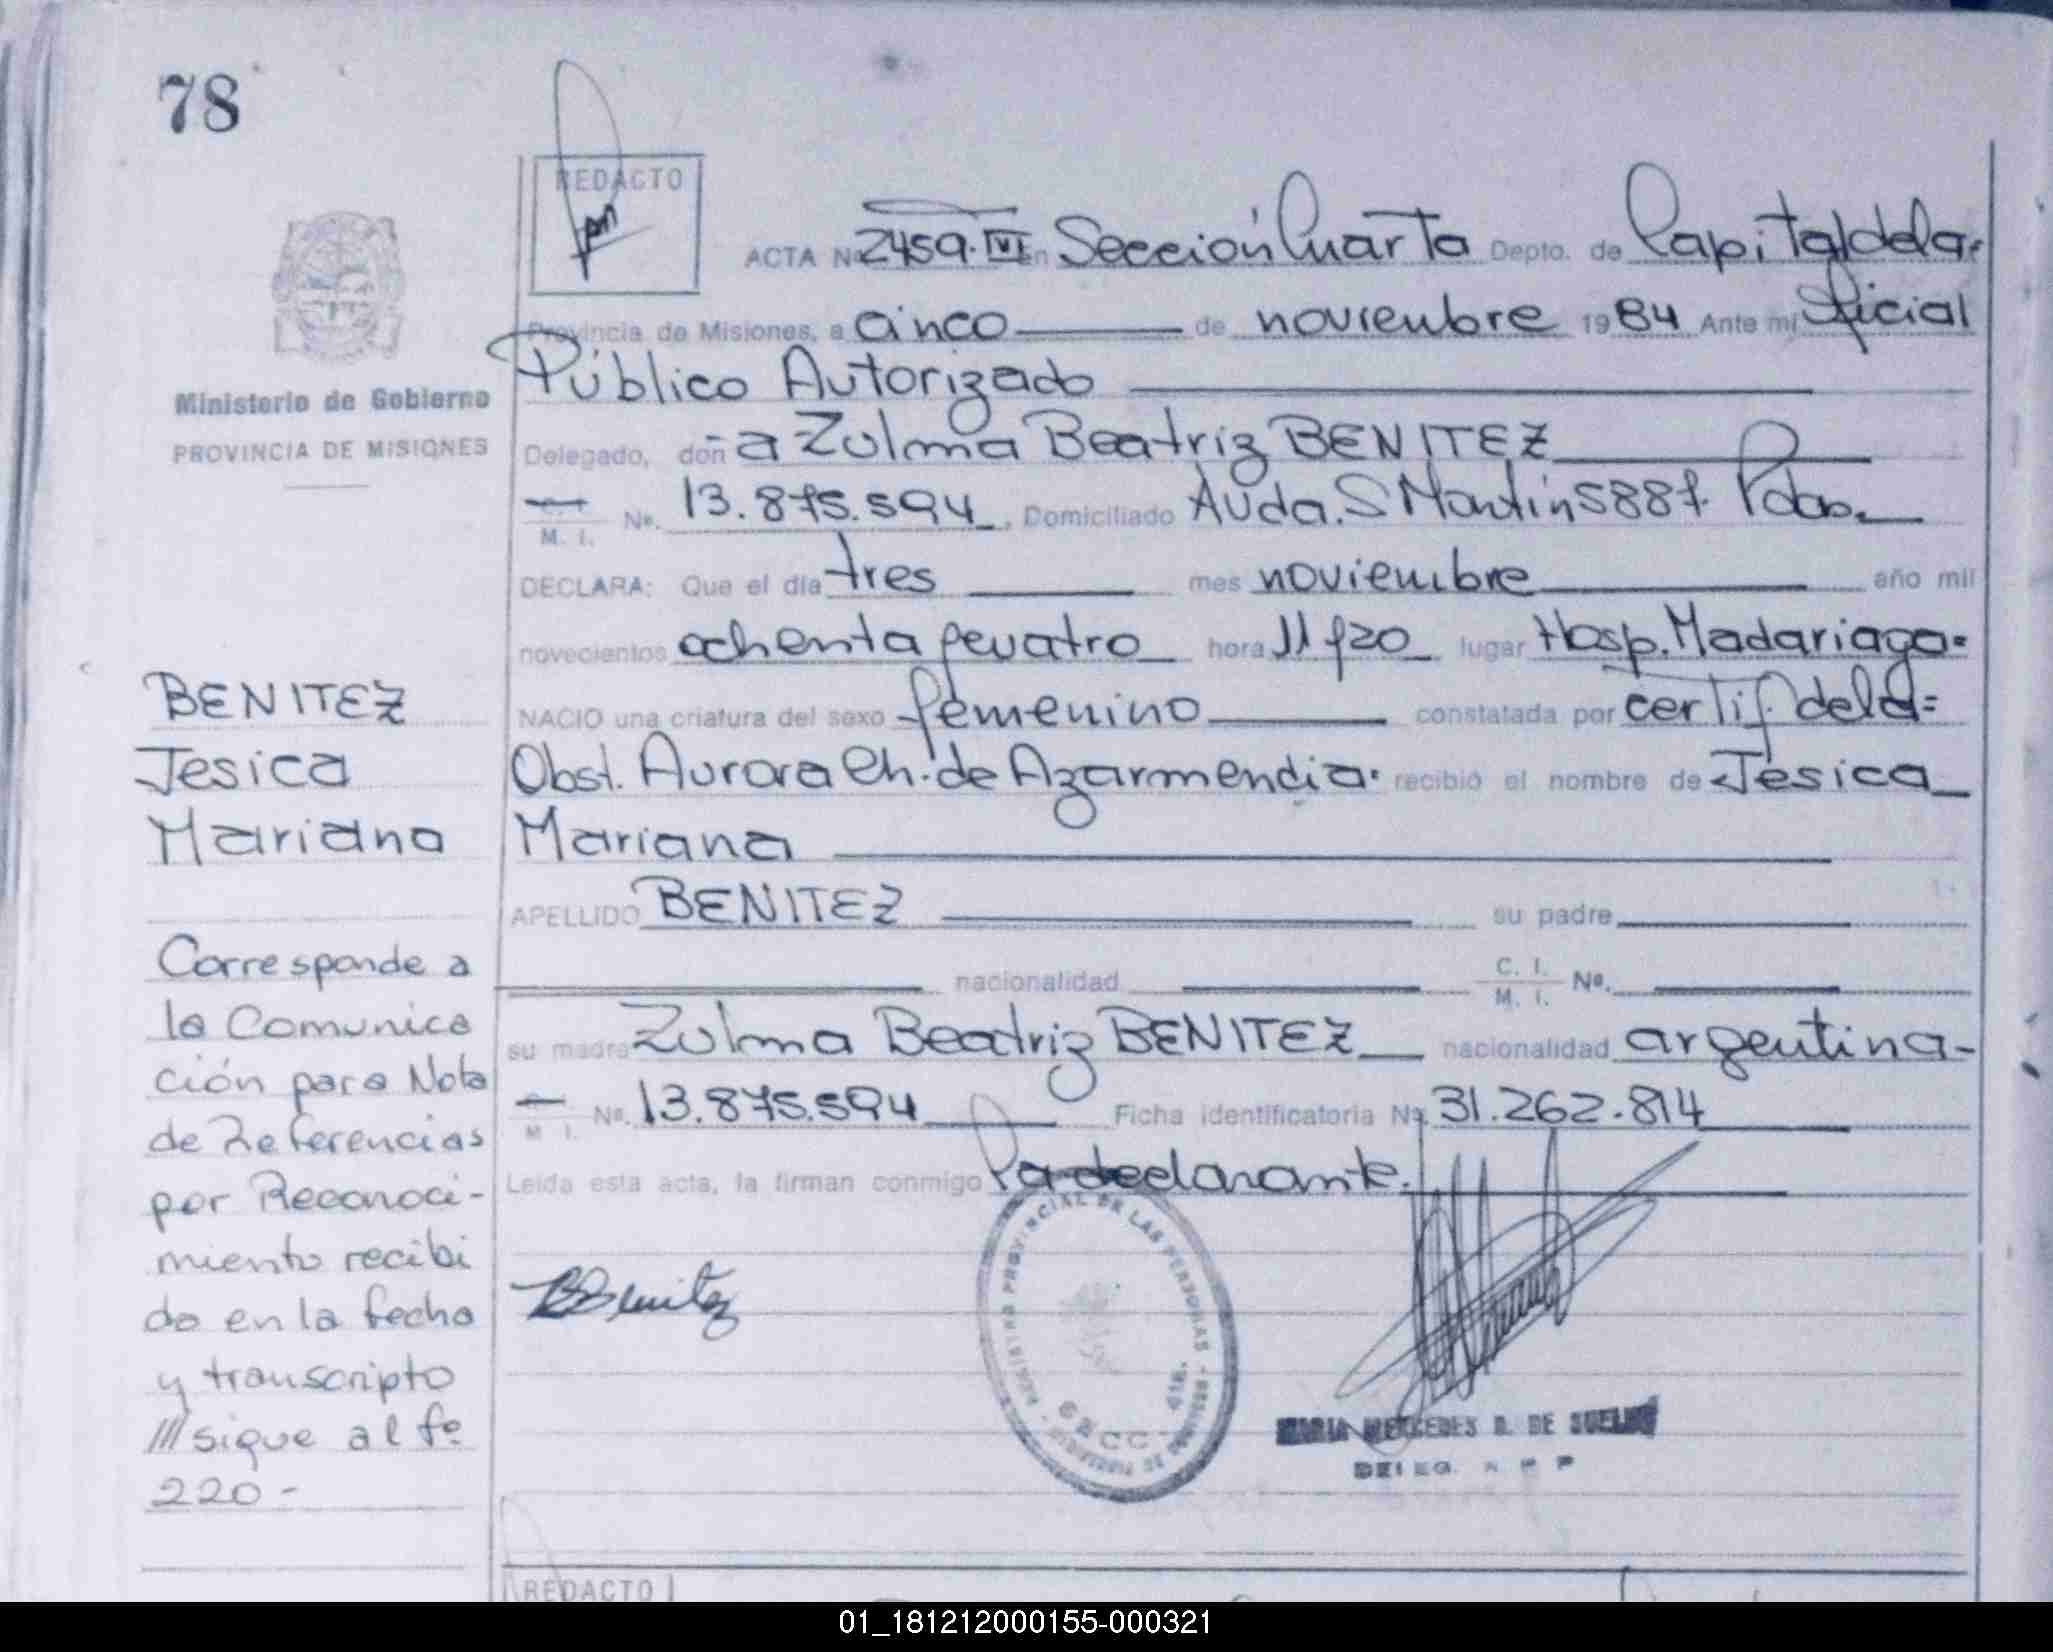 78
REDACTO
ACTA Nº 2459·IV en Sección Cuarta Depto. de Capital de la
Provincia de Misiones, a cinco de noviembre 1984 Ante mí Oficial
Público Autorizado
Ministerio de Gobierno
PROVINCIA DE MISIONES
Delegado, doña Zulma Beatriz BENITEZ
M. I. Nº. 13.875.594, Domiciliado Avda. S Martin 5887. Pdas.
DECLARA: Que el día tres mes noviembre año mil
novecientos ochenta y cuatro hora 11 y 20 lugar Hosp. Madariaga.
NACIO una criatura del sexo femenino constatada por certif. de la
Obst. Aurora Ch. de Azarmendia. recibió el nombre de Jesica
Mariana
BENITEZ
Jesica
Mariana
APELLIDO BENITEZ su padre
nacionalidad C. I. M. I. Nº.
su madre Zulma Beatriz BENITEZ nacionalidad argentina
M. I. Nº. 13.875.594 Ficha identificatoria Nº. 31.262.814
Leída esta acta, la firman conmigo la declarante.
Corresponde a
la Comunica
ción para Nota
de Referencias
por Reconoci-
miento recibi
do en la fecha
y transcripto
/// sigue al fº
220-
BBenitez
REGISTRO PROVINCIAL DE LAS PERSONAS
SECC. 4ta.
MARIA MERCEDES B. DE
DELEG. R P P
REDACTO
01_181212000155-000321